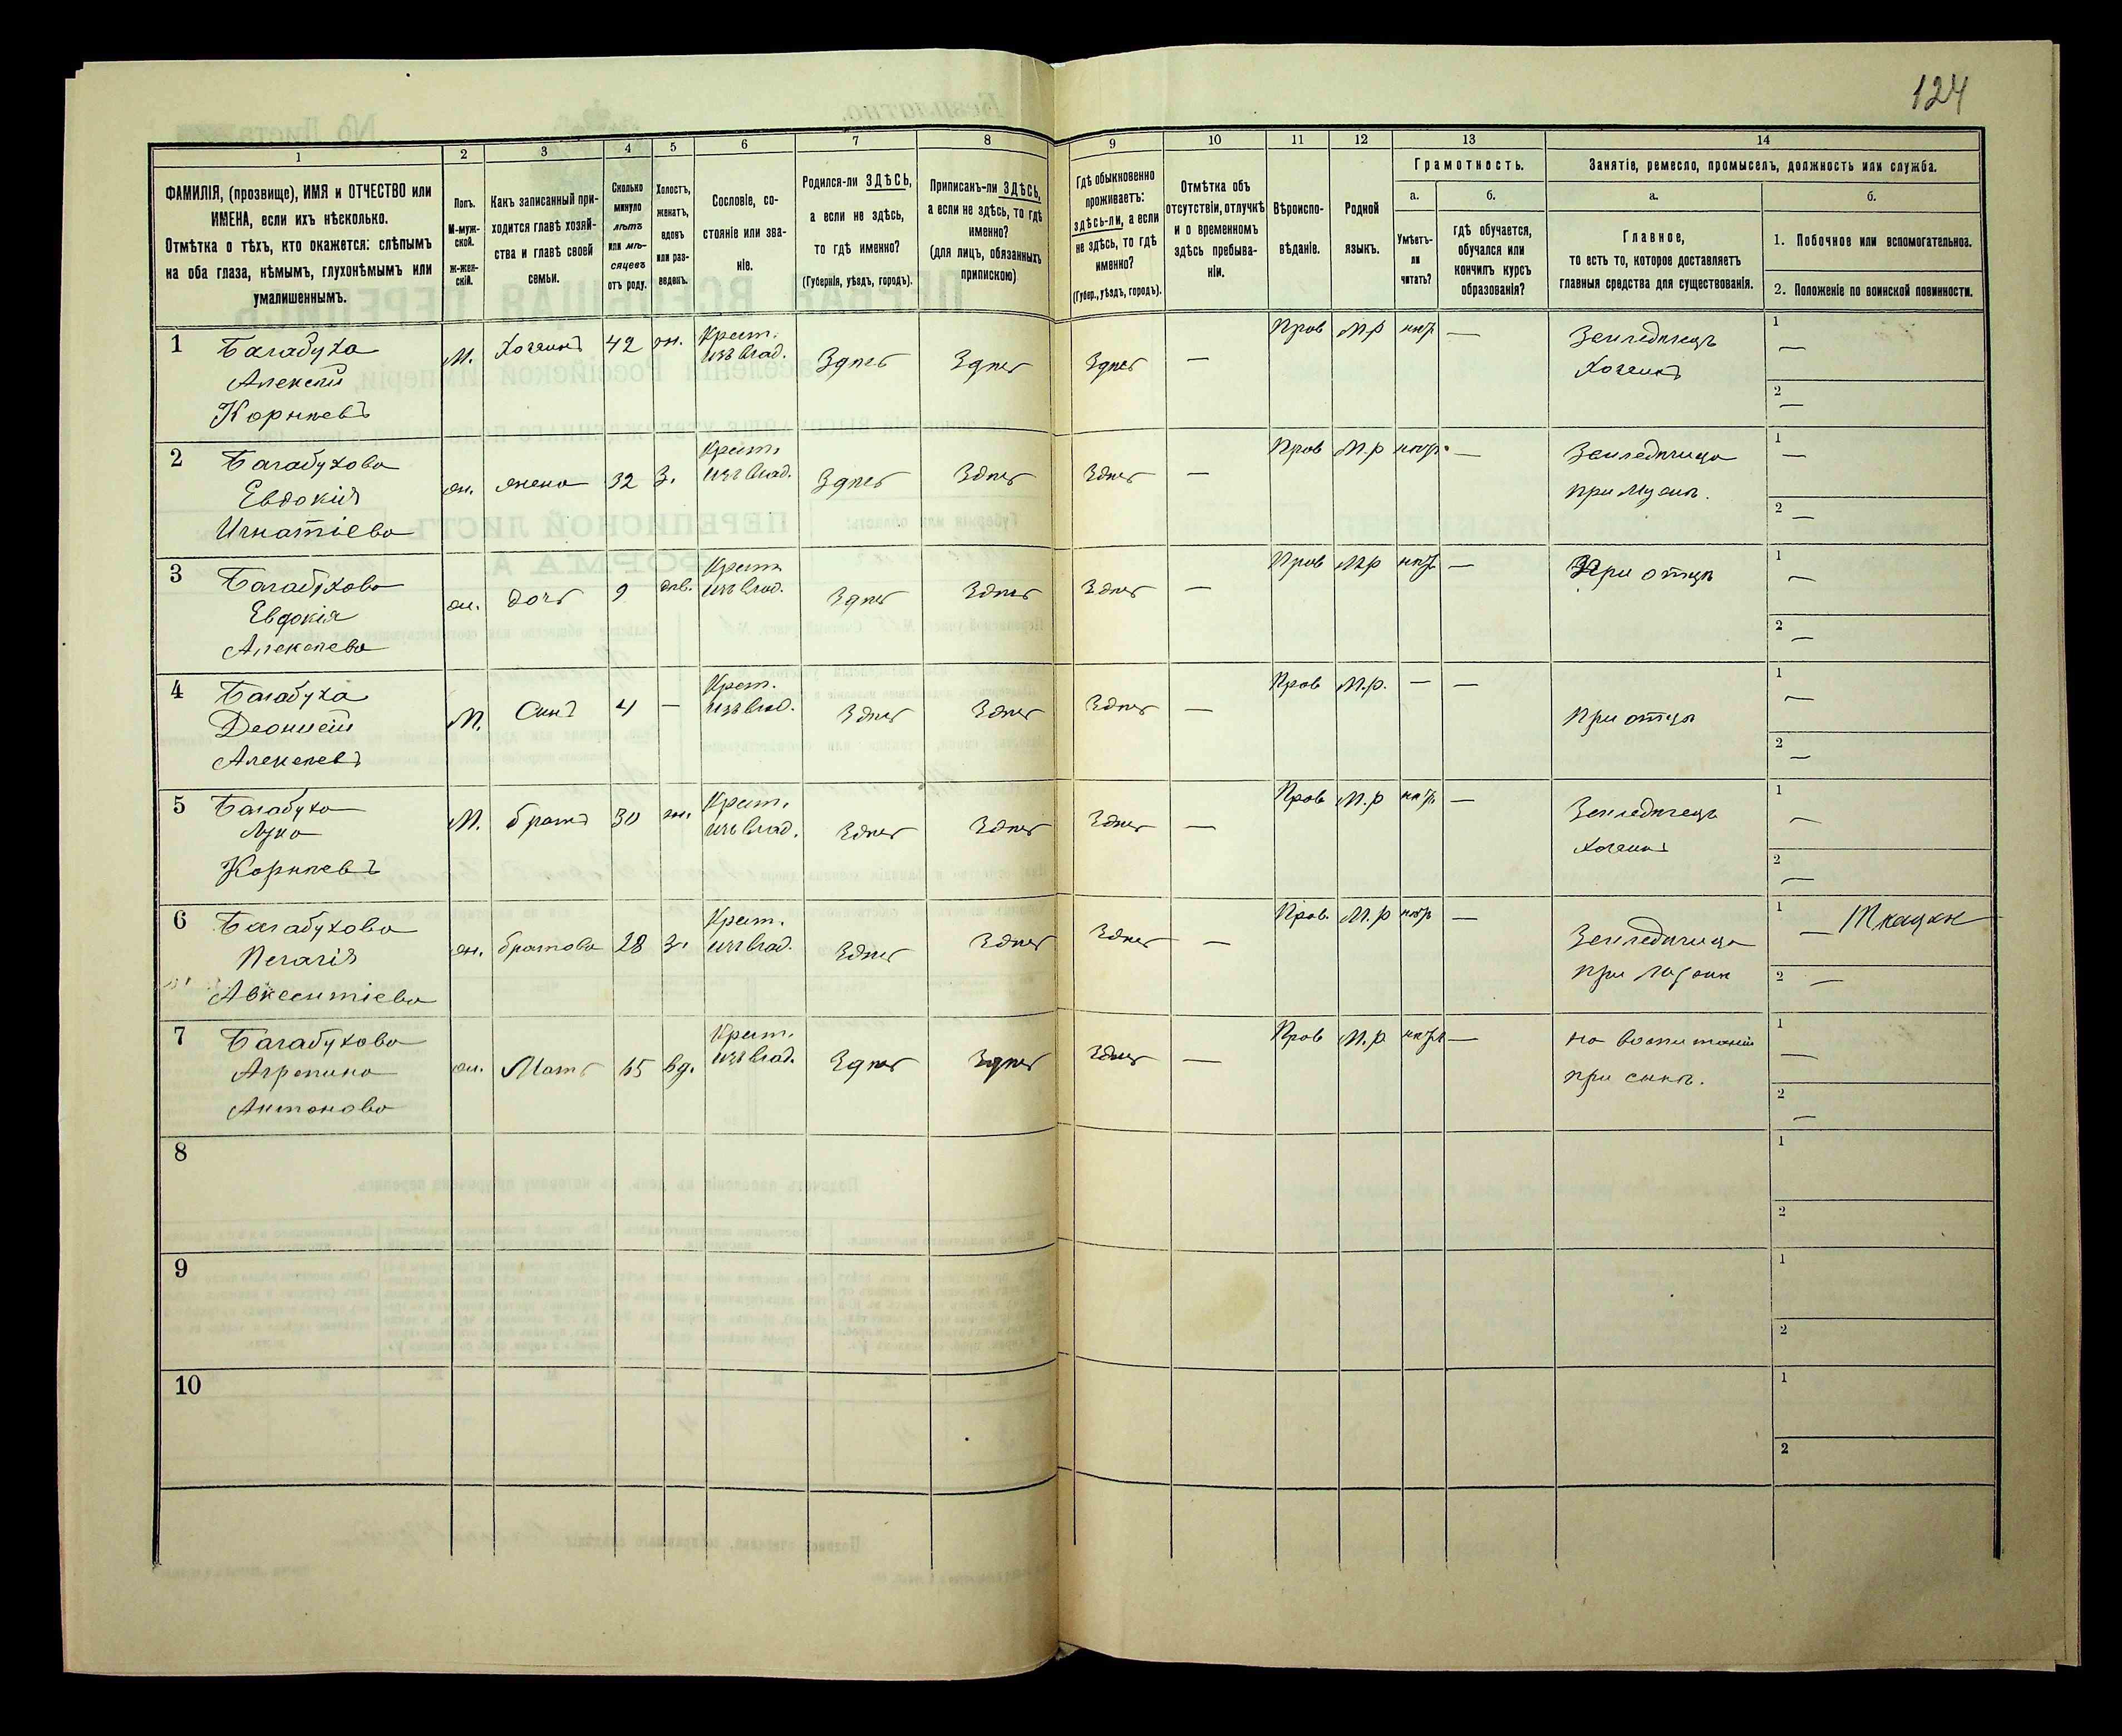 124
1
2
3
4
5
6
7
8
9
10
11
12
13
14
ФАМИЛІЯ, (прозвище), ИМЯ и ОТЧЕСТВО или
ИМЕНА, если ихъ нѣсколько.
Отмѣтка о тѣхъ, кто окажется: слѣпымъ
на оба глаза, нѣмымъ, глухонѣмымъ или
умалишеннымъ.
Полъ.
М-муж-
ской.
Ж-жен-
скій.
Какъ записанный при-
ходится главѣ хозяй-
ства и главѣ своей
семьи.
Сколько
минуло
лѣтъ
или мѣ-
сяцевъ
отъ роду.
Холостъ,
женатъ,
вдовъ
или раз-
веденъ.
Сословіе, со-
стояніе или зва-
ніе.
Родился-ли ЗДѢСЬ,
а если не здѣсь,
то гдѣ именно?
(Губернія, уѣздъ, городъ).
Приписанъ-ли ЗДѢСЬ,
а если не здѣсь, то гдѣ
именно?
(для лицъ, обязанныхъ
припискою)
Гдѣ обыкновенно
проживаетъ:
здѣсь-ли, а если
не здѣсь, то гдѣ
именно?
(Губер., уѣздъ, городъ).
Отмѣтка объ
отсутствіи, отлучкѣ
и о временномъ
здѣсь пребыва-
ніи.
Вѣроиспо-
вѣданіе.
Родной
языкъ.
Грамотность.
а.
Умѣетъ-
ли
читать?
б.
гдѣ обучается,
обучался или
кончилъ курсъ
образованія?
Занятіе, ремесло, промыселъ, должность или служба.
а.
Главное,
то есть то, которое доставляетъ
главныя средства для существованія.
б.
1. Побочное или вспомогательное.
2. Положеніе по воинской повинности.
1 Багабуха
Алексѣй
Корнѣевъ
М. Хозяинъ 42 ж. Крест. изъ влад. Здѣсь Здѣсь Здѣсь — Прав М.р нѣтъ —
Земледѣлецъ
Хозяинъ
1 —
2 —
2 Багабухова
Евдокія
Игнатіева
ж. жена 32 з. Крест. изъ влад. Здѣсь Здѣсь Здѣсь — Прав М.р нѣтъ —
Земледѣлица
при мужѣ.
1 —
2 —
3 Багабухова
Евдокія
Алексѣева
ж. дочь 9 дѣв. Крест. изъ влад. Здѣсь Здѣсь Здѣсь — Прав М.р нѣтъ —
При отцѣ
1 —
2 —
4 Багабуха
Деонисій
Алексѣевъ
М. Сынъ 4 — Крест. изъ влад. Здѣсь Здѣсь Здѣсь — Прав М.р. — —
При отцѣ
1 —
2 —
5 Багабуха
Лука
Корнѣевъ
М. братъ 30 ж. Крест. изъ влад. Здѣсь Здѣсь Здѣсь — Прав М.р нѣтъ —
Земледѣлецъ
Хозяинъ
1 —
2 —
6 Багабухова
Пелагія
Авксентіева
ж. братова 28 з. Крест. изъ влад. Здѣсь Здѣсь Здѣсь — Прав. М.р нѣтъ —
Земледѣлица
при мужѣ
1 —
2 —
7 Багабухова
Агрепина
Антонова
ж. Мать 65 вд. Крест. изъ влад. Здѣсь Здѣсь Здѣсь — Прав М.р нѣтъ —
на воспитаніи
при сынѣ.
1 —
2 —
8
1
2
9
1
2
10
1
2